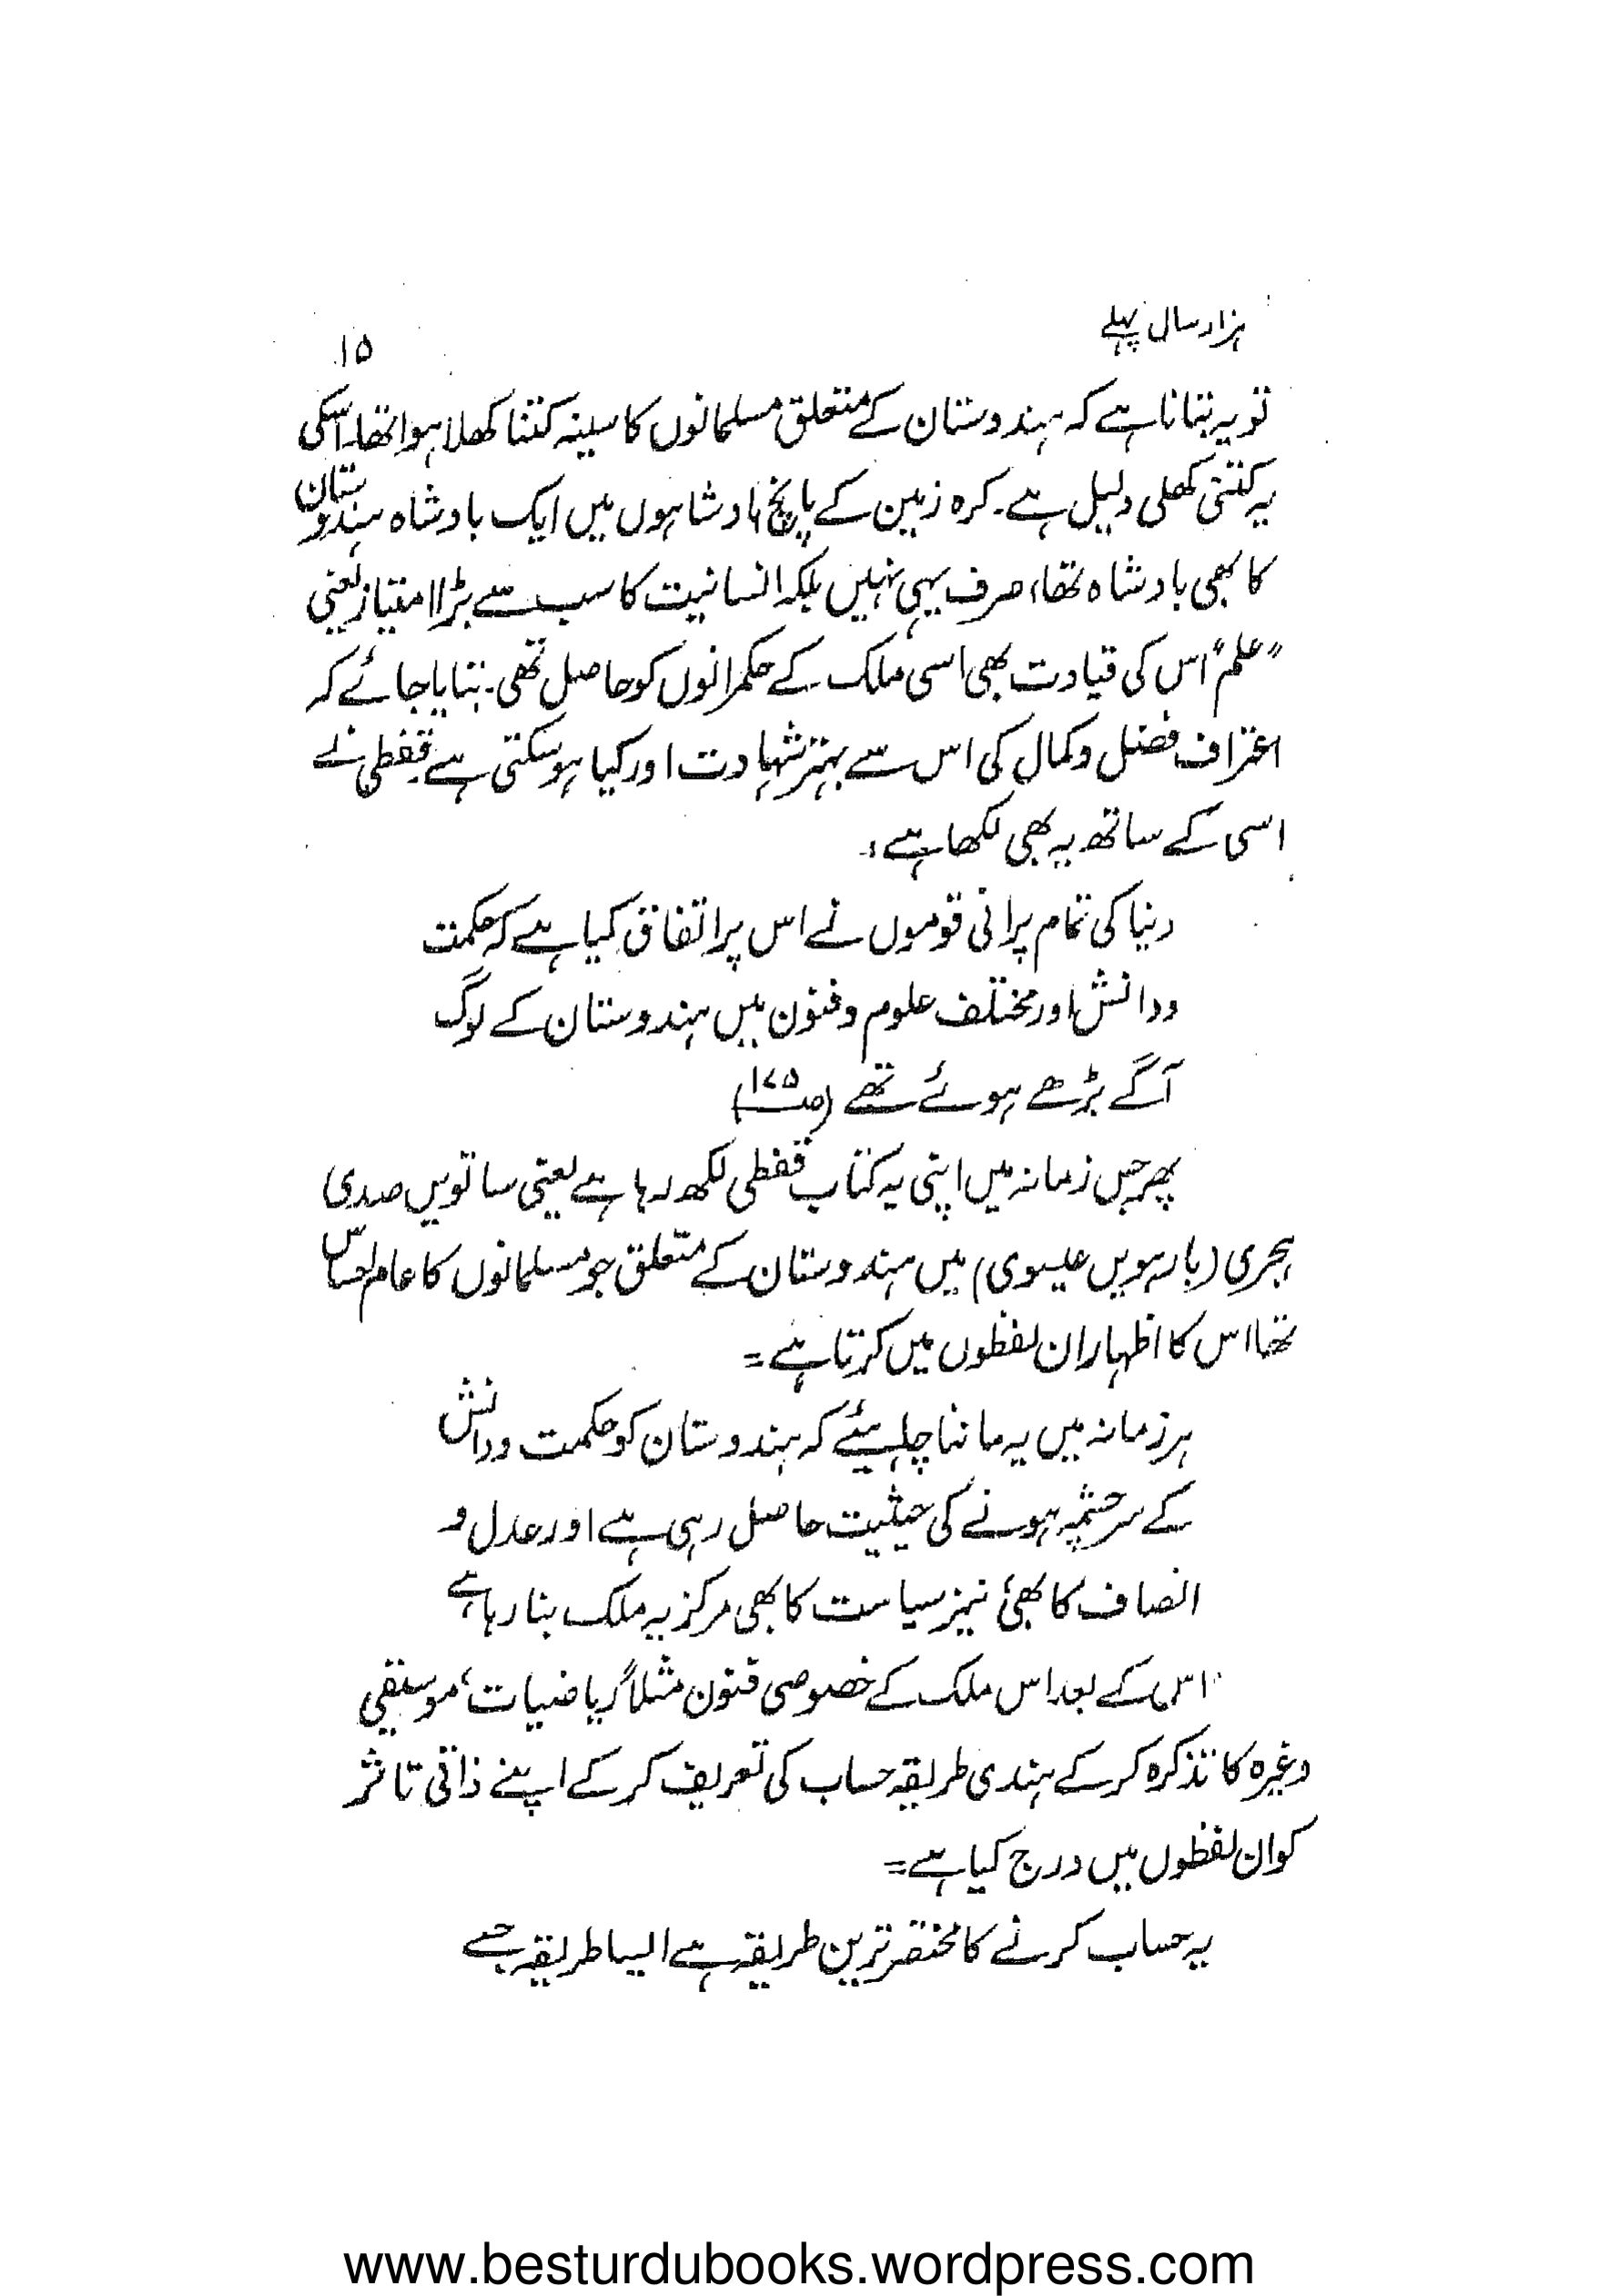 ہزار سال پہلے
۱۵
تو یہ بتانا ہے کہ ہندوستان کے متعلق مسلمانوں کا سینہ کتنا کھلا ہوا تھا۔ اسکی
یہ کتنی کھلی دلیل ہے۔ کرہ زمین کے پانچ بادشاہوں میں ایک بادشاہ ہندوستان
کا بھی بادشاہ تھا، صرف یہی نہیں بلکہ انسانیت کا سب سے بڑا امتیاز یعنی
"علم" اس کی قیادت بھی اسی ملک کے حکمرانوں کو حاصل تھی۔ بتایا جائے کہ
اعتراف فضل و کمال کی اس سے بہتر شہادت اور کیا ہو سکتی ہے۔ قفطی نے
اسی کے ساتھ یہ بھی لکھا ہے :-
دنیا کی تمام پرانی قوموں نے اس پر اتفاق کیا ہے کہ حکمت
و دانش اور مختلف علوم و فنون میں ہندوستان کے لوگ
آگے بڑھے ہوئے تھے (صـ ۱۷۵)
پھر جس زمانہ میں اپنی یہ کتاب قفطی لکھ رہا ہے یعنی ساتویں صدی
ہجری (بارہویں عیسوی) میں ہندوستان کے متعلق جو مسلمانوں کا عام احساس
تھا اس کا اظہار ان لفظوں میں کرتا ہے =
ہر زمانہ میں یہ ماننا چاہیئے کہ ہندوستان کو حکمت و دانش
کے سرچشمہ ہونے کی حیثیت حاصل رہی ہے اور عدل و
انصاف کا بھی نیز سیاست کا بھی مرکز یہ ملک بنا رہا ہے
اس کے بعد اس ملک کے خصوصی فنون مثلاً ریاضیات، موسیقی
وغیرہ کا تذکرہ کر کے ہندی طریقہ حساب کی تعریف کر کے اپنے ذاتی تاثر
کو ان لفظوں میں درج کیا ہے =
یہ حساب کرنے کا مختصر ترین طریقہ ہے ایسا طریقہ جسے
www.besturdubooks.wordpress.com